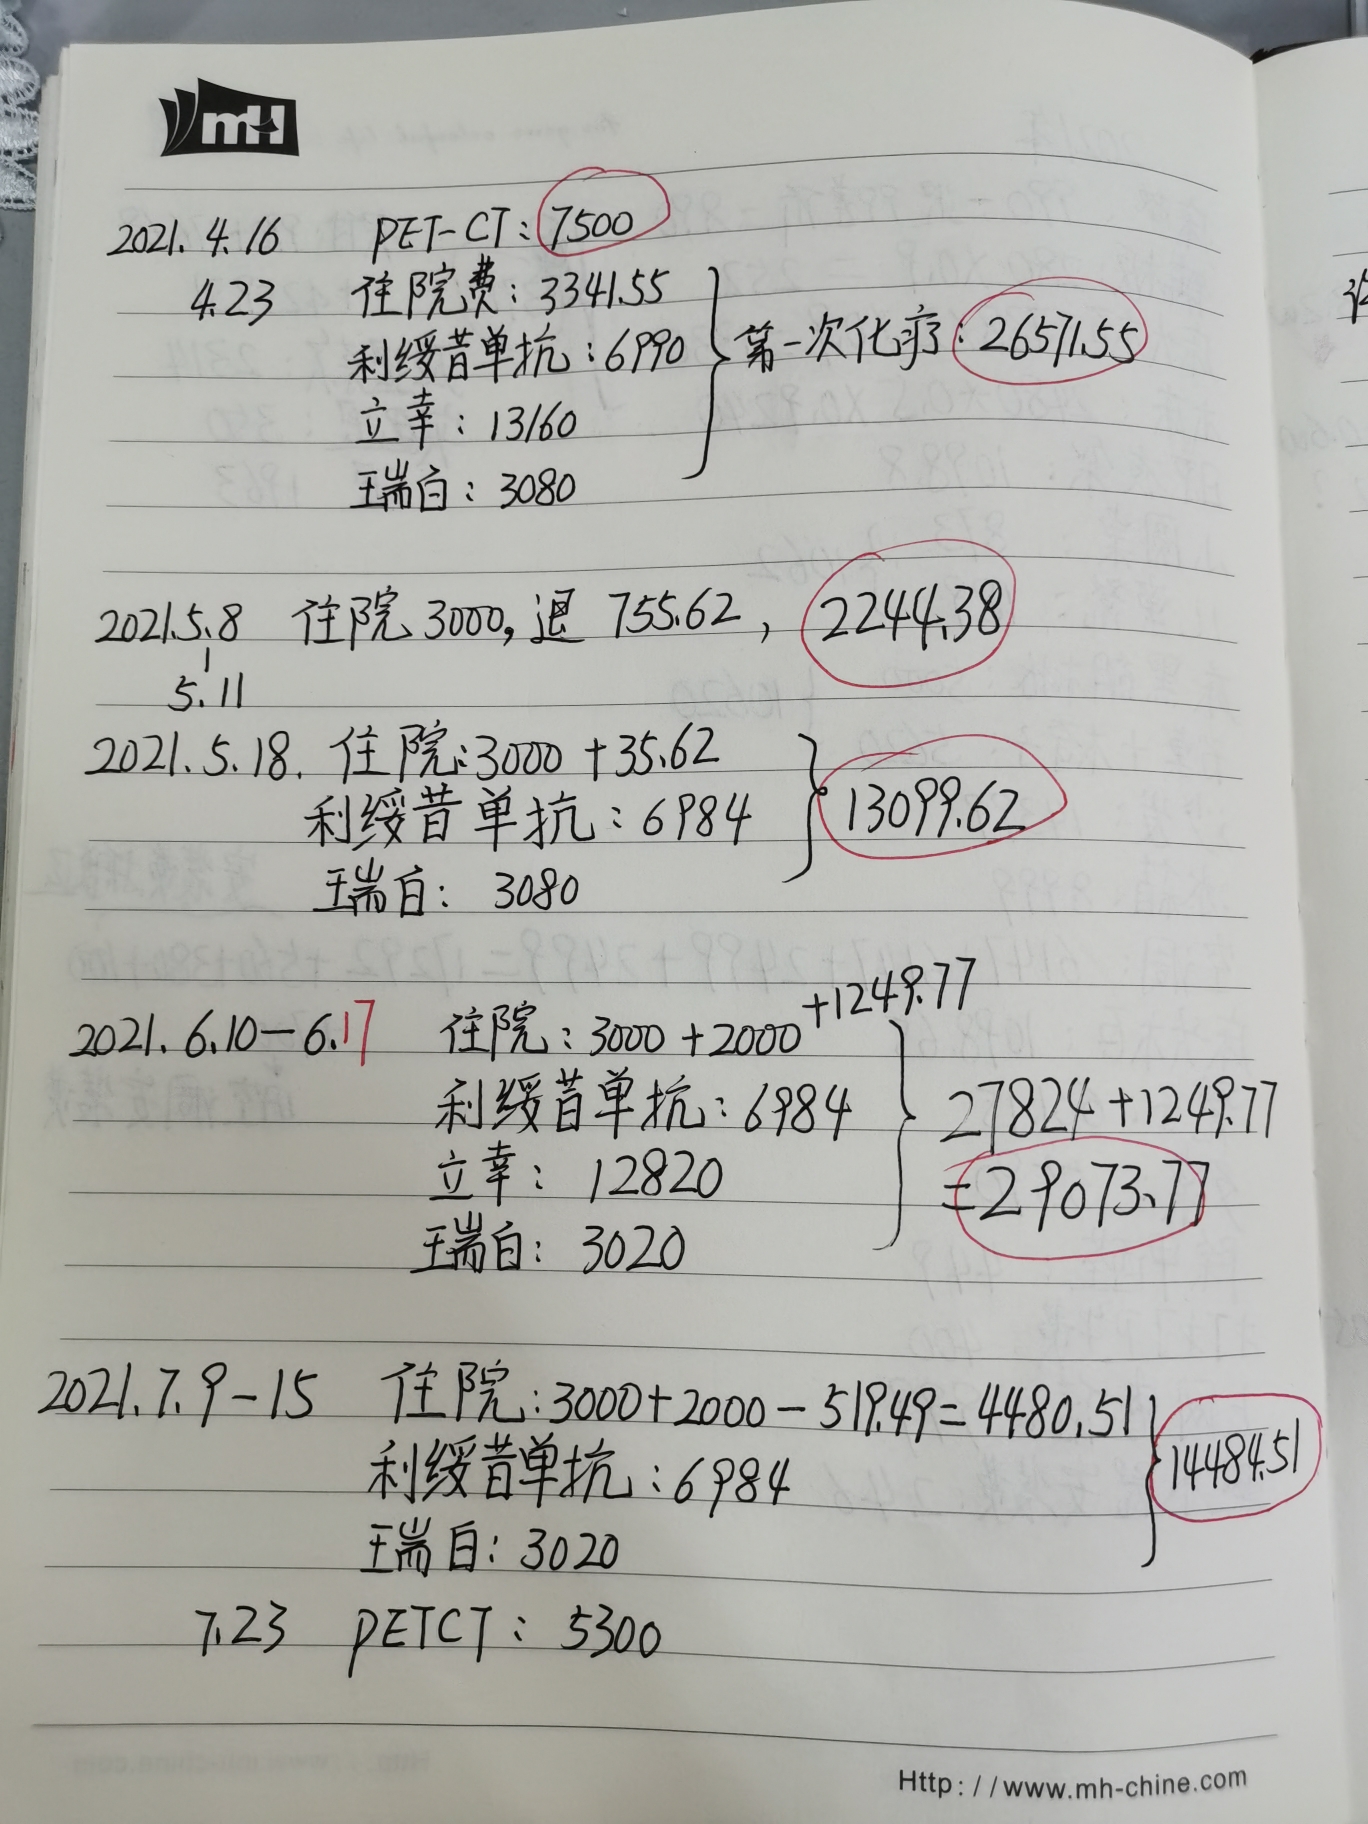 mH
2021.4.16 PET-CT：7500
4.23 住院费：3341.55
利绥昔单抗：6990
第一次化疗：26571.55
立幸：13160
瑞白：3080
2021.5.8 住院3000，退755.62，2244.38
5.11
2021.5.18. 住院：3000+35.62
利绥昔单抗：6984
13099.62
瑞白：3080
2021.6.10-6.17 住院：3000+2000+1249.77
利绥昔单抗：6984
27824+1249.77
立幸：12820
=29073.77
瑞白：3020
2021.7.9-15 住院：3000+2000-519.49=4480.51
利绥昔单抗：6984
14484.51
瑞白：3020
7.23 PETCT：5300
Http://www.mh-chine.com